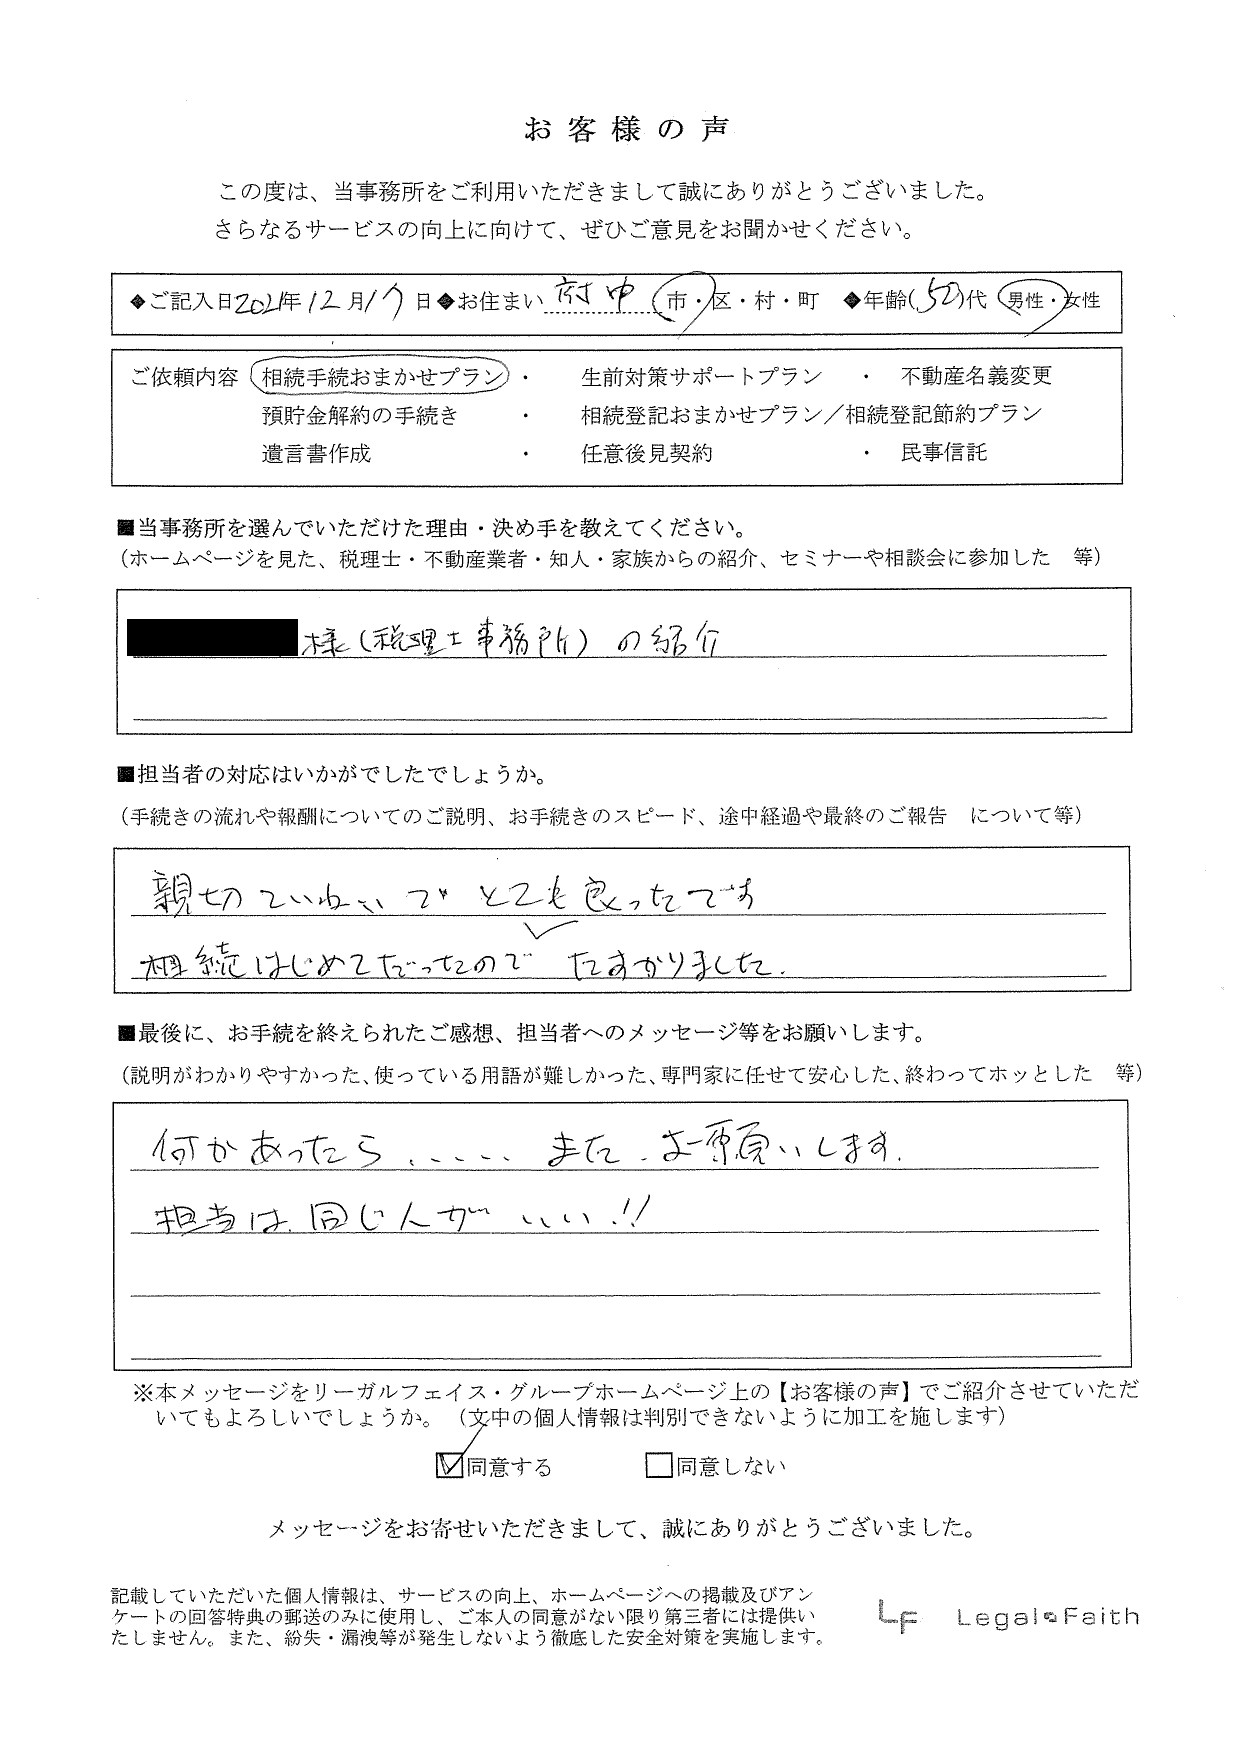 お客様の声
この度は、当事務所をご利用いただきまして誠にありがとうございました。
さらなるサービスの向上に向けて、ぜひご意見をお聞かせください。
◆ご記入日2021年12月17日◆お住まい 府中 市・区・村・町 ◆年齢(50)代 男性・女性
ご依頼内容 相続手続おまかせプラン ・ 生前対策サポートプラン ・ 不動産名義変更
預貯金解約の手続き ・ 相続登記おまかせプラン／相続登記節約プラン
遺言書作成 ・ 任意後見契約 ・ 民事信託
■当事務所を選んでいただけた理由・決め手を教えてください。
（ホームページを見た、税理士・不動産業者・知人・家族からの紹介、セミナーや相談会に参加した 等）
様（税理士事務所）の紹介
■担当者の対応はいかがでしたでしょうか。
（手続きの流れや報酬についてのご説明、お手続きのスピード、途中経過や最終のご報告 について等）
親切ていねいで とても良ったです
相続はじめてだったので たすかりました.
■最後に、お手続を終えられたご感想、担当者へのメッセージ等をお願いします。
（説明がわかりやすかった、使っている用語が難しかった、専門家に任せて安心した、終わってホッとした 等）
何かあったら..... また.お願いします.
担当は.同じ人が いい.!!
※本メッセージをリーガルフェイス・グループホームページ上の【お客様の声】でご紹介させていただ
いてもよろしいでしょうか。（文中の個人情報は判別できないように加工を施します）
☑同意する □同意しない
メッセージをお寄せいただきまして、誠にありがとうございました。
記載していただいた個人情報は、サービスの向上、ホームページへの掲載及びアン
ケートの回答特典の郵送のみに使用し、ご本人の同意がない限り第三者には提供い
たしません。また、紛失・漏洩等が発生しないよう徹底した安全対策を実施します。
LF Legal Faith